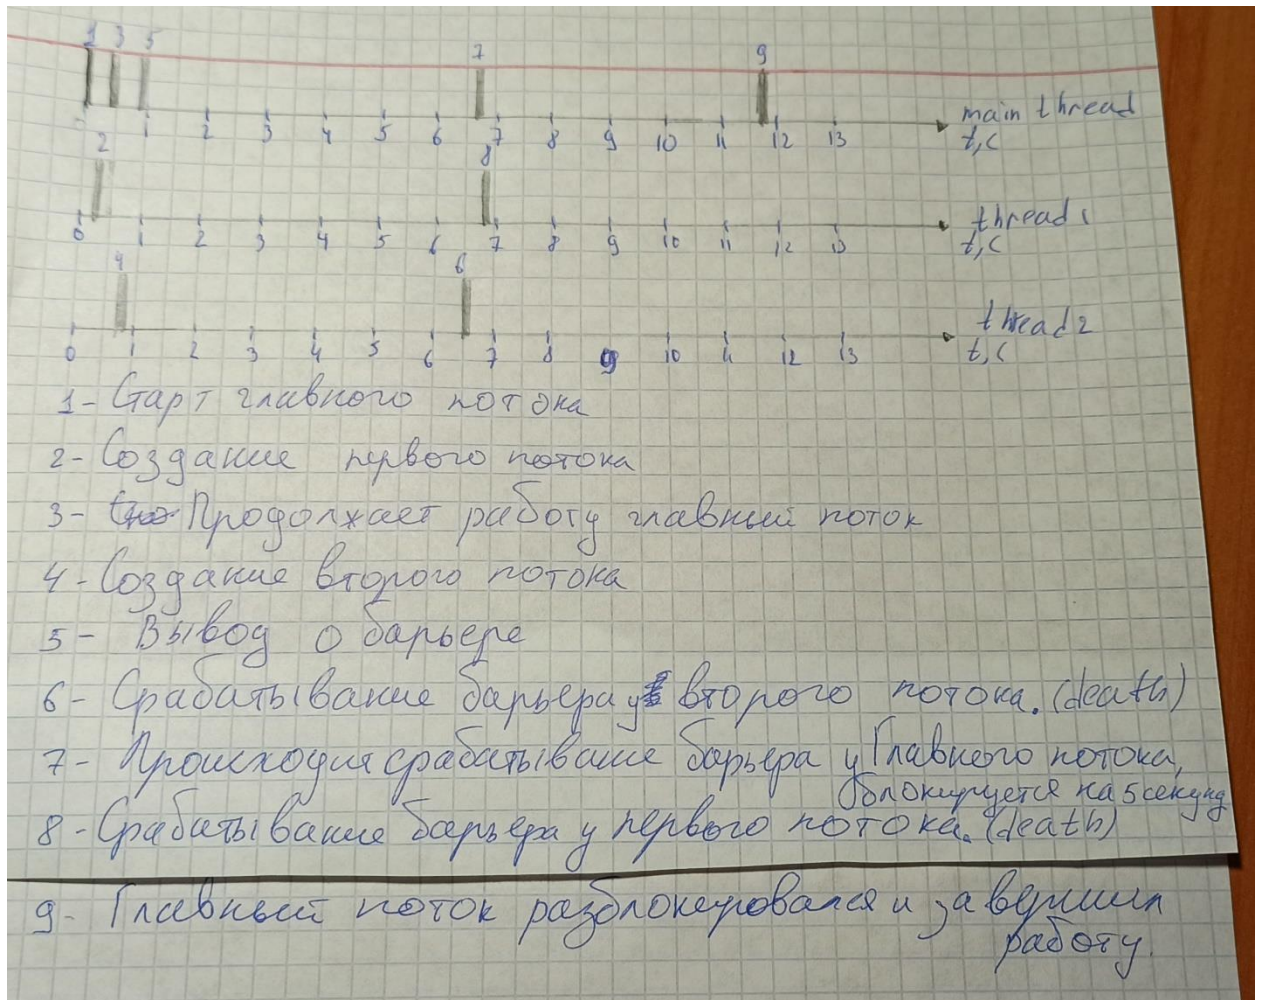 1 3 5 7 9
0 1 2 3 4 5 6 7 8 9 10 11 12 13 main thread
t,c
2 8
0 1 2 3 4 5 6 7 8 9 10 11 12 13 thread 1
t,c
4 6
0 1 2 3 4 5 6 7 8 9 10 11 12 13 thread 2
t,c
1- Старт главного потока
2- Создание первого потока
3- Продолжает работу главный поток
4- Создание второго потока
5- Вывод о барьере
6- Срабатывание барьера у второго потока. (death)
7- Происходит срабатывание барьера у Главного потока,
блокируется на 5 секунд
8- Срабатывание барьера у первого потока. (death)
9- Главный поток разблокировался и завершил
работу.